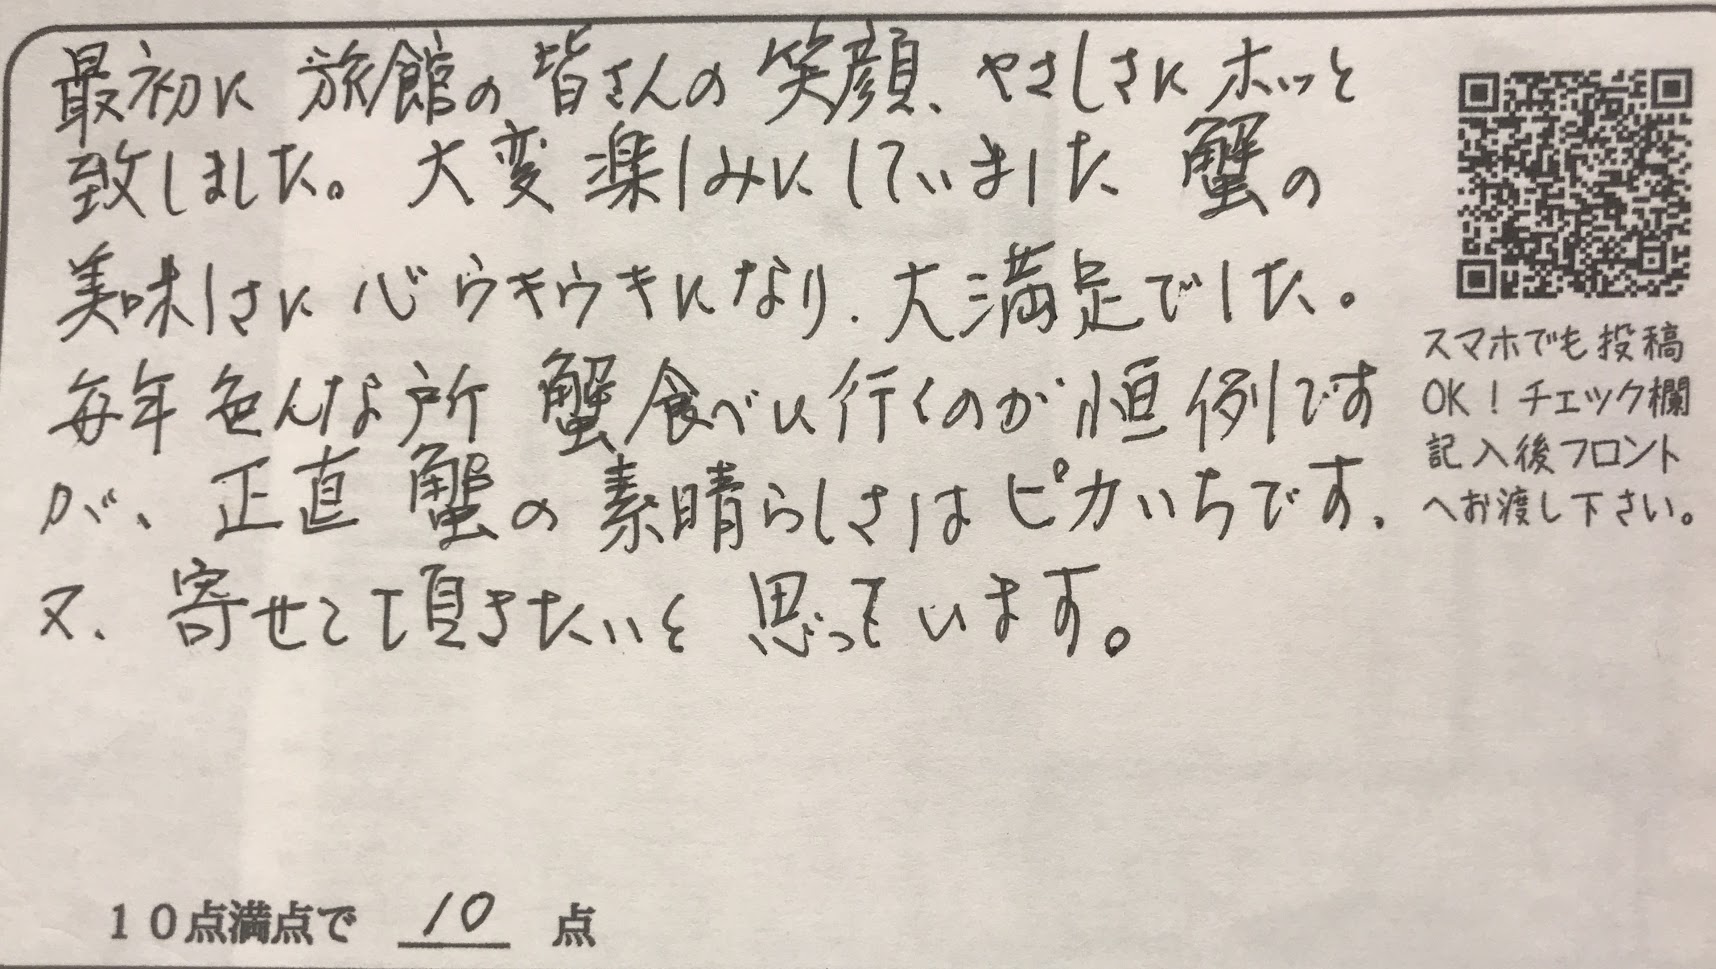 最初に 旅館の 皆さんの 笑顔、やさしさに ホッと
致しました。大変 楽しみにしていました 蟹の
美味しさに 心 ウキウキになり、大満足でした。
毎年 色んな所 蟹食べに行くのが 恒例です
が、正直 蟹の 素晴らしさは ピカいちです。
又、寄せて頂きたいと 思っています。
スマホでも投稿
OK！チェック欄
記入後フロント
へお渡し下さい。
10点満点で 10 点